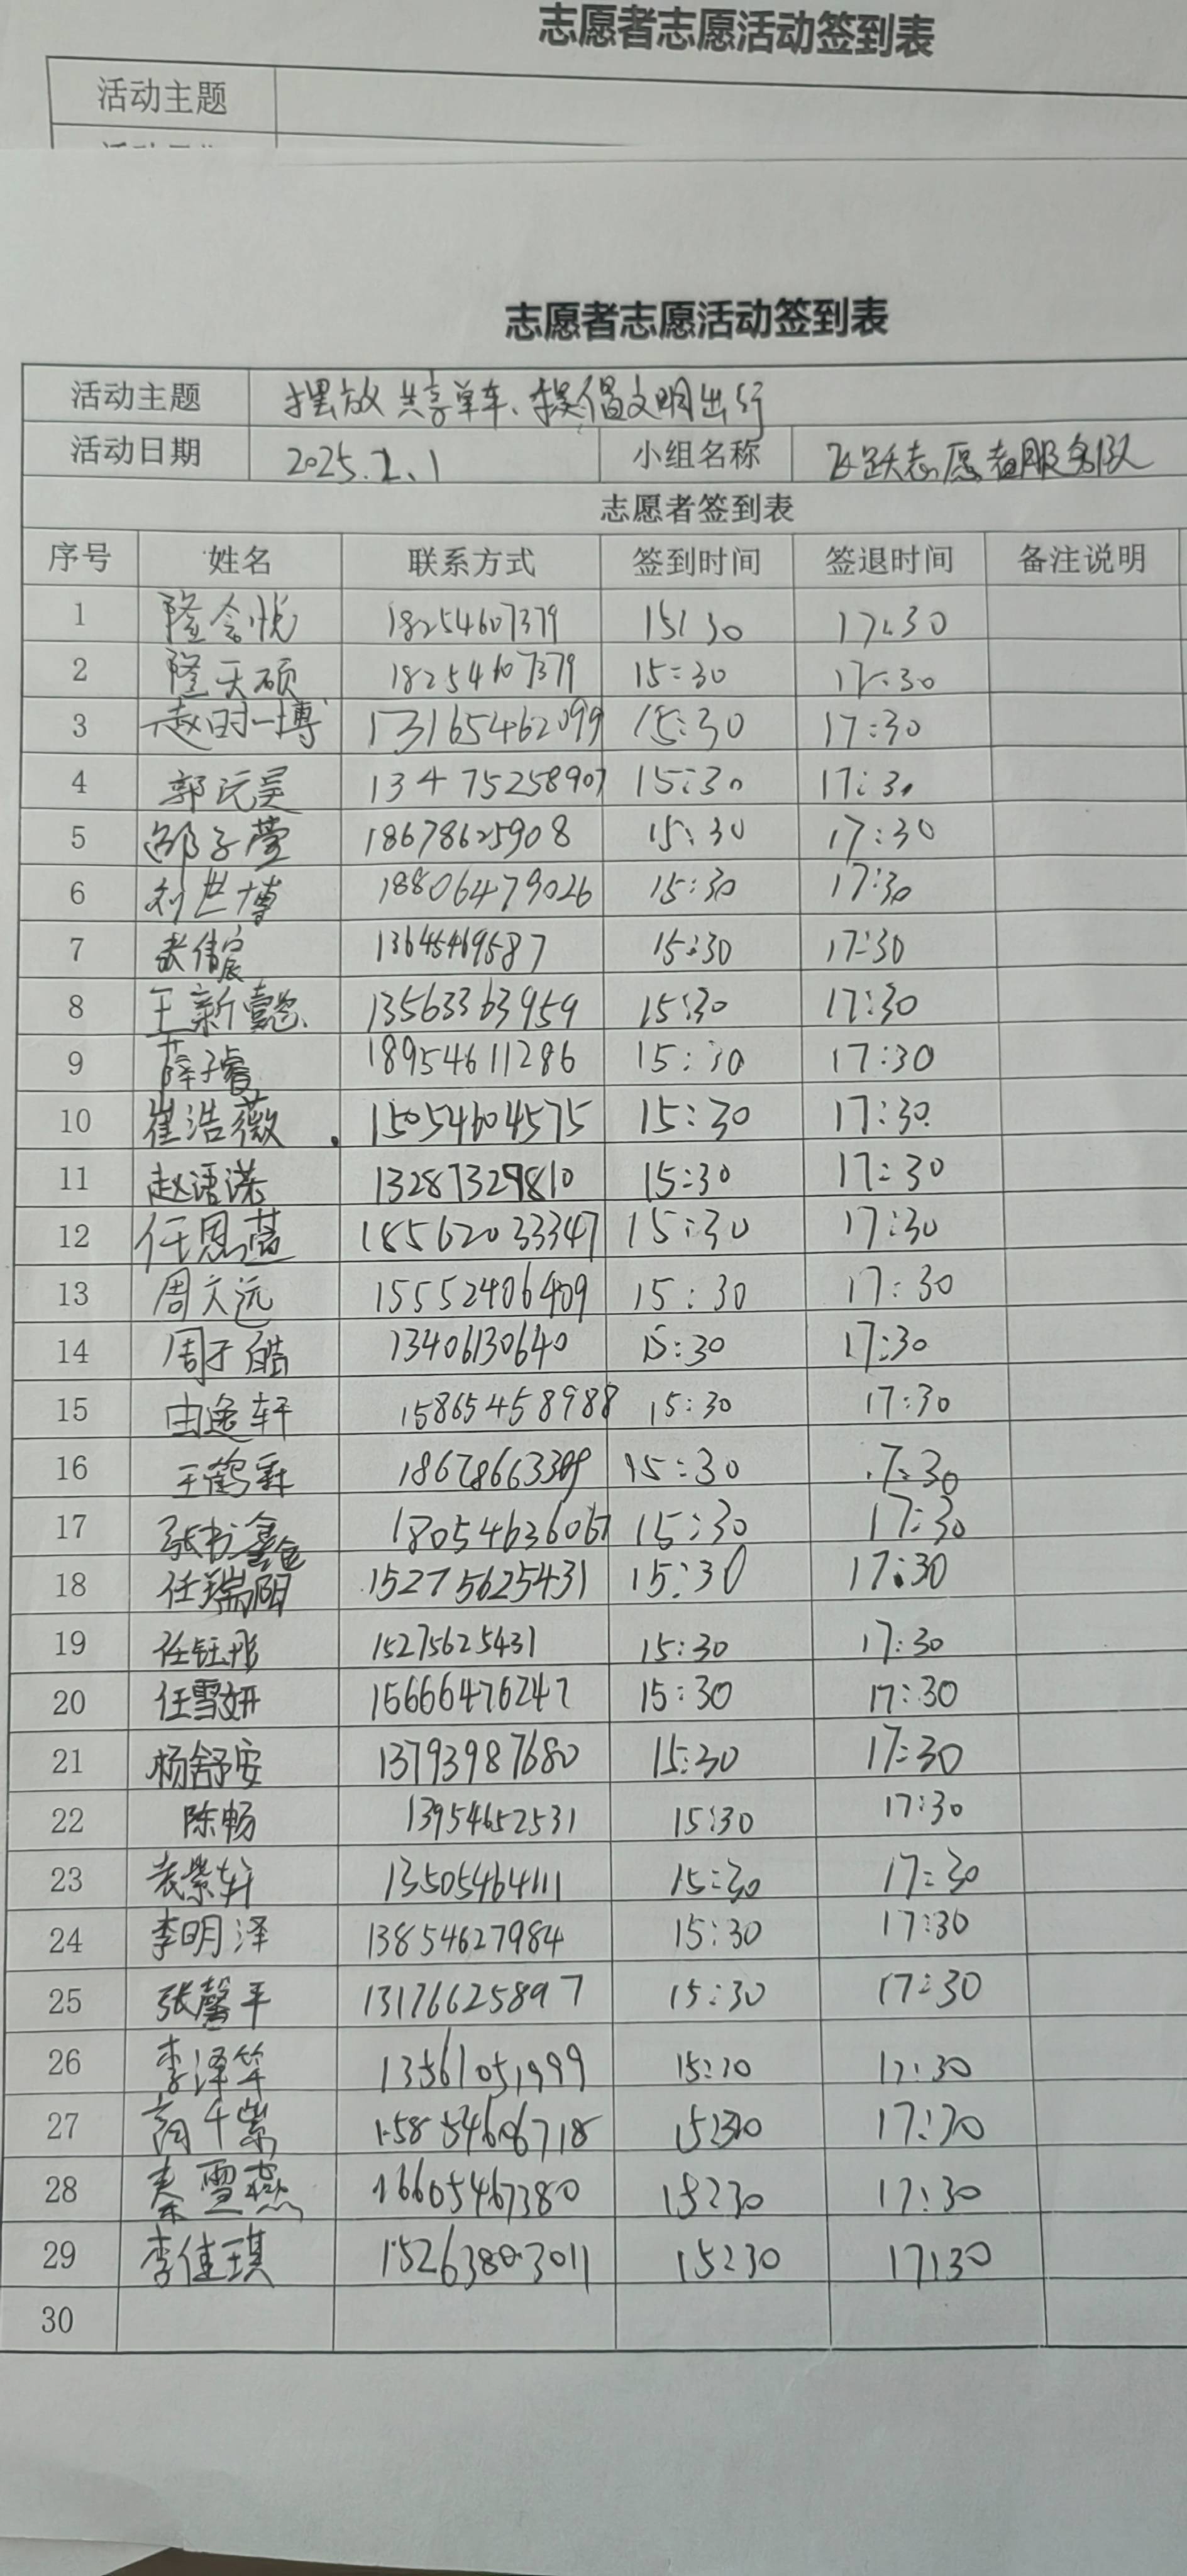 志愿者志愿活动签到表
活动主题
志愿者志愿活动签到表
活动主题 摆放共享单车、提倡文明出行
活动日期 2025.2.1 小组名称 飞跃志愿者服务队
志愿者签到表
序号 姓名 联系方式 签到时间 签退时间 备注说明
1 隆念悦 18254607379 15:30 17:30
2 隆天硕 18254607379 15:30 17:30
3 赵时一博 17316546209915:30 17:30
4 郭沅昊 13475258907 15:30 17:30
5 邵子萱 18678625908 15:30 17:30
6 刘世博 18806479026 15:30 17:30
7 13645469587 15:30 17:30
8 王新懿 13563363959 15:30 17:30
9 薛子睿 18954611286 15:30 17:30
10 崔浩薇 15054604575 15:30 17:30
11 赵语涵 13287329810 15:30 17:30
12 任思蓓 18562033347 15:30 17:30
13 周文远 15552406409 15:30 17:30
14 周子皓 13406130640 15:30 17:30
15 由逸轩 15865458988 15:30 17:30
16 王鹤霖 15:30 17:30
17 张书鑫 18054636067 15:30 17:30
18 任瑞阳 15275625431 15:30 17:30
19 任钰彤 15275625431 15:30 17:30
20 任雪妍 15666476247 15:30 17:30
21 杨舒安 13793987680 15:30 17:30
22 陈畅 13954652531 15:30 17:30
23 袁紫轩 13505464111 15:30 17:30
24 李明泽 13854627984 15:30 17:30
25 张馨平 13176625897 15:30 17:30
26 李泽华 13561051999 15:30 17:30
27 商千紫 15854606718 15:30 17:30
28 秦雪燕 16605467380 15:30 17:30
29 李佳琪 15263803011 15:30 17:30
30